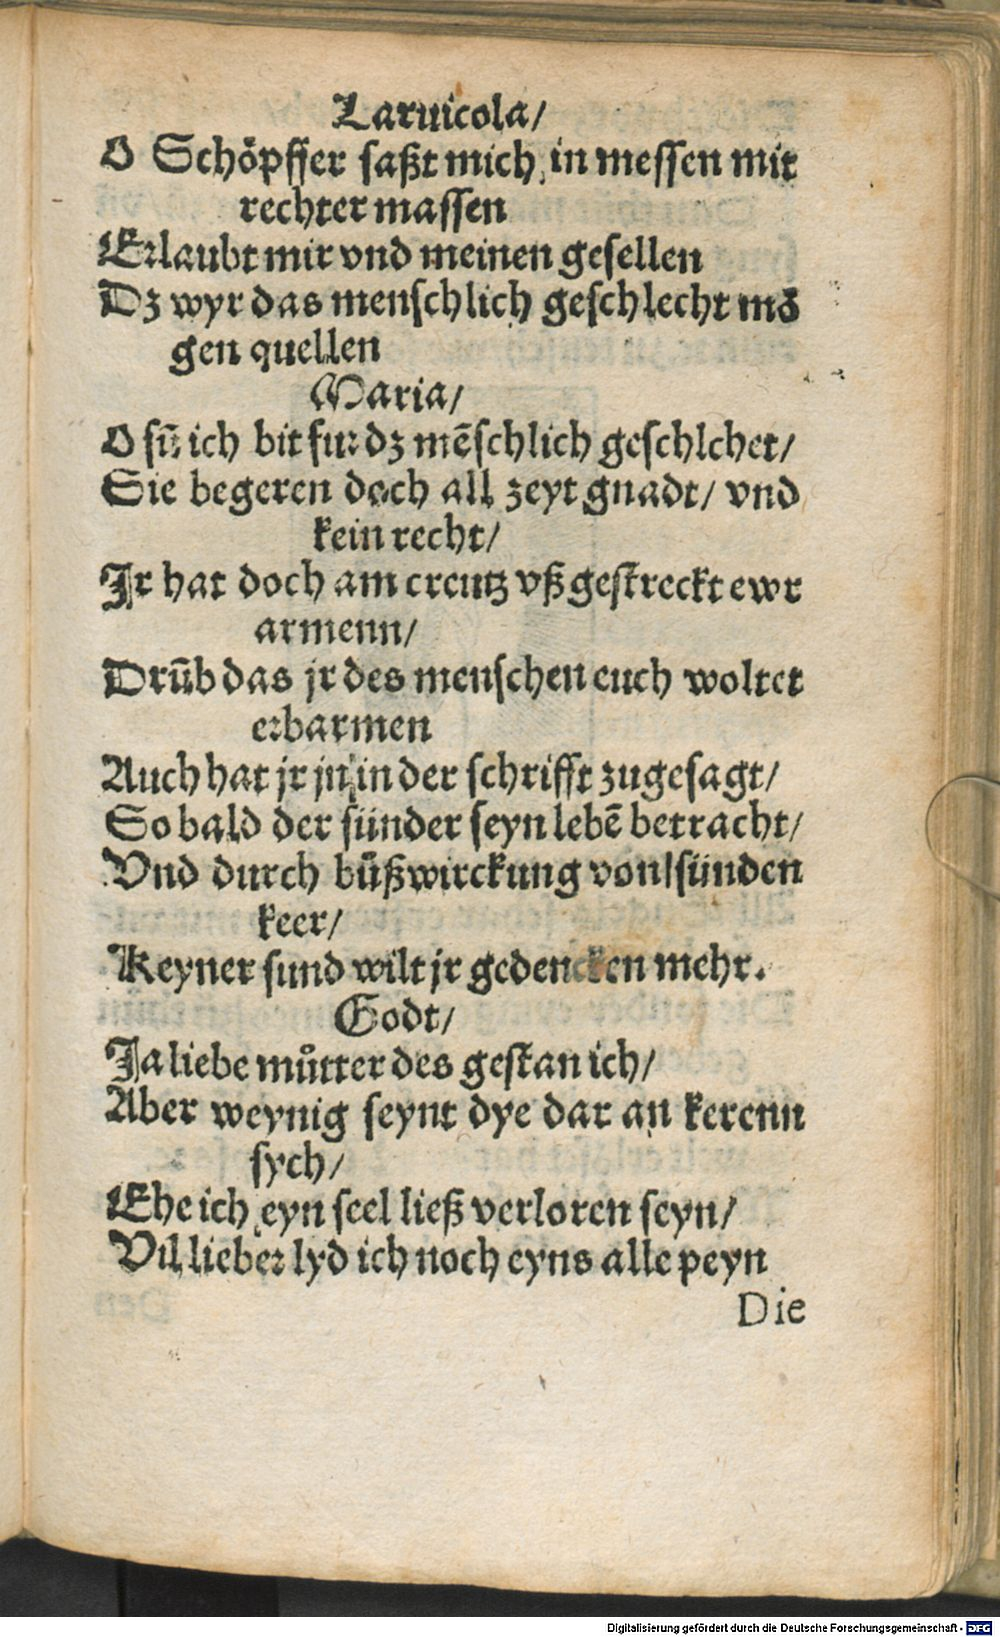 Laruicola/
O Schöpffer saßt mich in messen mit
rechter massen
Erlaubt mir vnd meinen gesellen
Dz wyr das menschlich geschlecht mö
gen quellen
Maria/
O sũ ich bit fur dz mẽschlich geschlchet/
Sie begeren doch all zeyt gnadt/ vnd
kein recht/
Jr hat doch am creutz vß gestreckt ewr
armenn/
Drũb das jr des menschen euch woltet
erbarmen
Auch hat jr jn in der schrifft zugesagt/
So bald der sünder seyn lebẽ betracht/
Vnd durch bůßwirckung von sünden
keer/
Keyner sund wilt jr gedencken mehr.
Godt/
Ja liebe můtter des gestan ich/
Aber weynig seynt dye dar an kerenn
sych/
Ehe ich eyn seel ließ verloren seyn/
Vil lieber lyd ich noch eyns alle peyn
Die
Digitalisierung gefördert durch die Deutsche Forschungsgemeinschaft - DFG